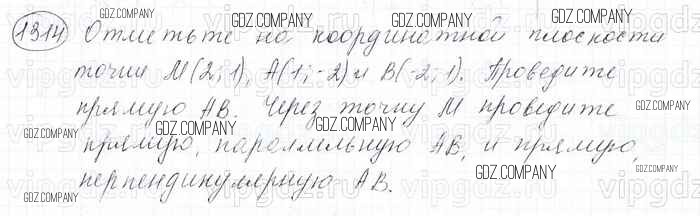 1314 Отметьте на координатной плоскости
точки M(2; 1), A(1; -2) и B(-2; 1). Проведите
прямую AB. Через точку M проведите
прямую, параллельную AB, и прямую,
перпендикулярную AB.
GDZ.COMPANY
GDZ.COMPANY
GDZ.COMPANY
GDZ.COMPANY
GDZ.COMPANY
GDZ.COMPANY
GDZ.COMPANY
GDZ.COMPANY
GDZ.COMPANY
GDZ.COMPANY